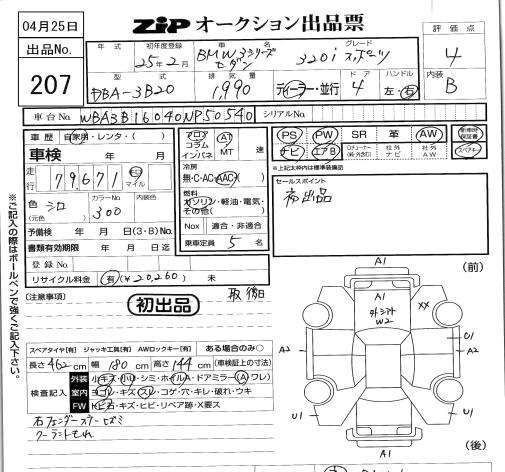 04月25日
ZIP オークション出品票
出品No.
207
年式
初年度登録
車名
グレード
25年2月
BMW 3シリーズ
セダン
320i スポーツ
評価点
4
型式
排気量
ドア
ハンドル
DBA-3B20
1,990
ディーラー・並行
4
左・右
内装
B
車台No.
WBA3B16040NP50540
シリアルNo.
車歴
自家用・レンタ・( )
車検
年 月
走行
79,671
km
マイル
色
(元色)
シロ
カラーNo.
300
内装色
予備検 年 月 日(3・8)No.
書類有効期限 年 月 日迄
登録No.
リサイクル料金
有(¥20,260) 未
フロア
コラム
インパネ
AT
MT
速
冷房
無・C・AC・AAC
燃料
ガソリン・軽油・電気・
その他( )
Nox
適合・非適合
乗車定員
5名
PS
PW
SR
革
AW
ナビ
エアB
社外
ナビ
社外
AW
新車時
保証書
スペアキー
※上記太枠内は標準装備品
セールスポイント
初出品
※ご記入の際はボールペンで強くご記入下さい。
(注意事項)
初出品
取 後日
スペアタイヤ[有] ジャッキ工具[有] AWロックキー[有]
ある場合のみ○
長さ 462 cm 幅 180 cm 高さ 144 cm (車検証上の寸法)
検査記入
外装
小キズ・小U・シミ・ホイルA・ドアミラー(A)ワレ)
室内
ヨゴレ・キズ・スレ・コゲ・穴・キレ・破れ・ウキ
FW
トビ石・キズ・ヒビ・リペア跡・X要ス
右フェンダーステーヒズミ
クーラントもれ
(前)
A1
A1
W2
XX
U1
A2
A2
A1
U1
U1
A1
(後)